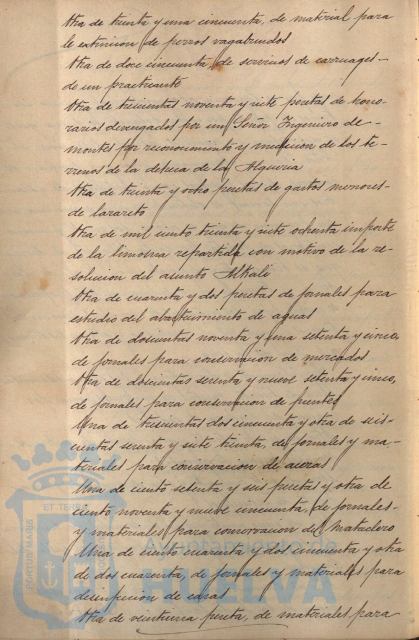 Otra de treinta y una cincuenta, de material para
la extincion de perros vagabundos
Otra de doce cincuenta, de servicios de carruages
de un practicante
Otra de trescientas noventa y siete pesetas de hono-
rarios devengados por un Señor Ingeniero de
montes por reconocimiento y medicion de los te-
rrenos de la dehesa de la Alqueria
Otra de treinta y ocho pesetas de gastos menores
de lazareto
Otra de mil ciento treinta y siete ochenta importe
de la limosna repartida con motivo de la re-
solucion del asunto Alkali
Otra de cuarenta y dos pesetas de jornales para
estudio del abastecimiento de aguas
Otra de doscientas noventa y una setenta y cinco,
de jornales para conservacion de mercados
Otra de doscientas setenta y nueve setenta y cinco,
de jornales para conservacion de puentes
Una de trescientas dos cincuenta y otra de seis-
cientas setenta y siete treinta, de jornales y ma-
teriales para conservacion de aceras
Una de ciento setenta y seis pesetas y otra de
ciento noventa y nueve cincuenta, de jornales
y materiales para conservacion del Matadero
Una de ciento cuarenta y dos cincuenta y otra
de dos cuarenta, de jornales y materiales para
desinfeccion de casas
Otra de veintiuna peseta, de materiales para
PORTUS MARIS
ET TERRAE
HUELVA